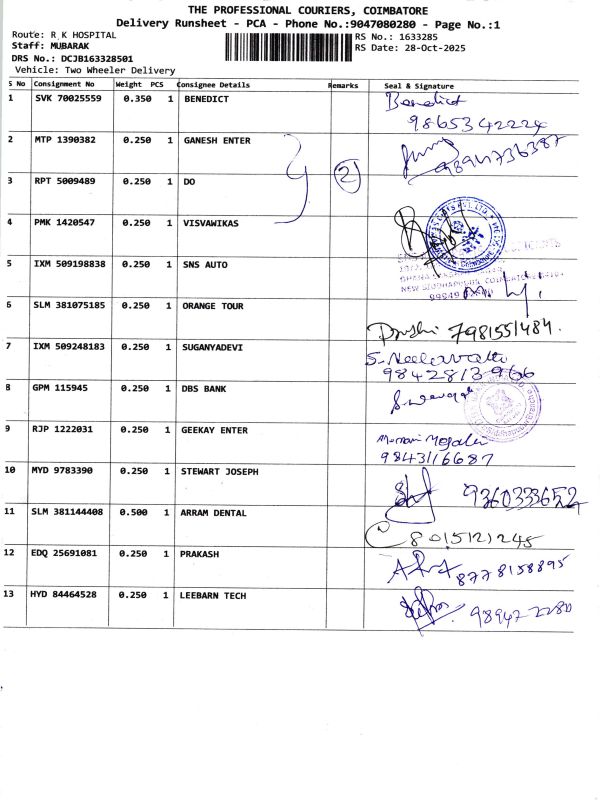 THE PROFESSIONAL COURIERS, COIMBATORE
Delivery Runsheet - PCA - Phone No.:9047080280 - Page No.:1
Route: R K HOSPITAL
Staff: MUBARAK
DRS No.: DCJB163328501
Vehicle: Two Wheeler Delivery
RS No.: 1633285
RS Date: 28-Oct-2025
S No Consignment No Weight PCS Consignee Details Remarks Seal & Signature
1 SVK 70025559 0.350 1 BENEDICT Benedict
9865342224
2 MTP 1390382 0.250 1 GANESH ENTER
3 RPT 5009489 0.250 1 DO 2
4 PMK 1420547 0.250 1 VISVAWIKAS
5 IXM 509198838 0.250 1 SNS AUTO
6 SLM 381075185 0.250 1 ORANGE TOUR
7981551484.
7 IXM 509248183 0.250 1 SUGANYADEVI
9842813966
8 GPM 115945 0.250 1 DBS BANK
9 RJP 1222031 0.250 1 GEEKAY ENTER
9843116687
10 MYD 9783390 0.250 1 STEWART JOSEPH
9360333652
11 SLM 381144408 0.500 1 ARRAM DENTAL
8015121245
12 EDQ 25691081 0.250 1 PRAKASH
8778158895
13 HYD 84464528 0.250 1 LEEBARN TECH